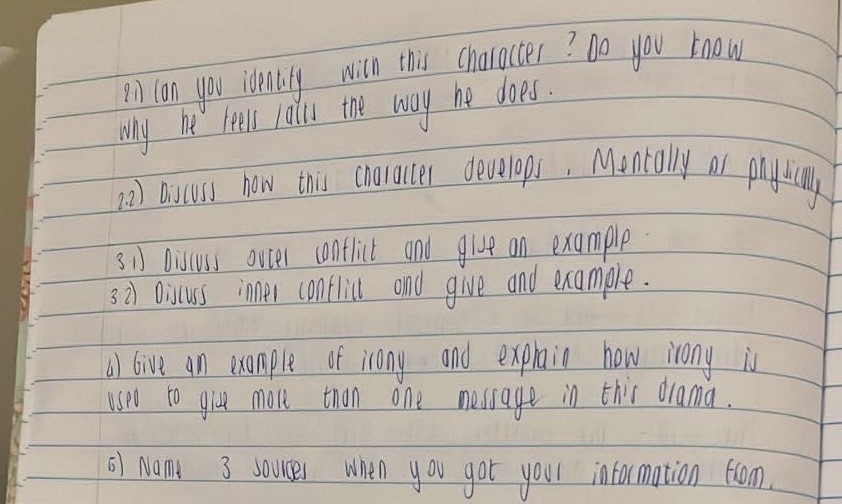 2.1) Can you identify with this character? Do you know
why he feels/acts the way he does.
2.2) Discuss how this character develops. Mentally or physically
3.1) Discuss outer conflict and give an example.
3.2) Discuss inner conflict and give and example.
4) Give an example of irony and explain how irony is
used to give more than one message in this drama.
5) Name 3 sources when you got your information from.